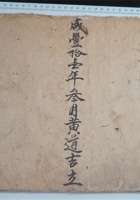 咸豐拾壹年叁月黄道吉立